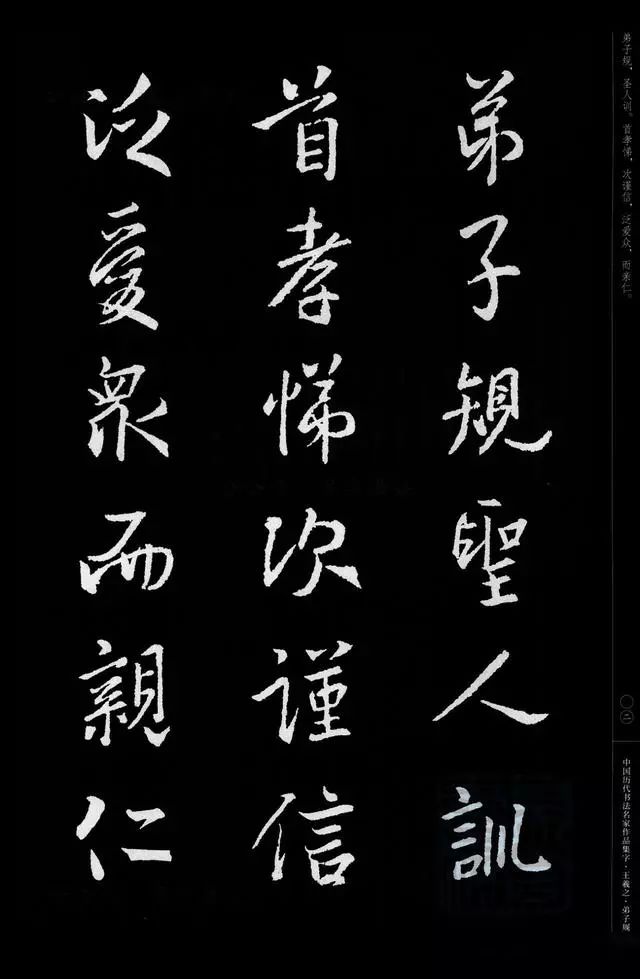 弟子規聖人訓
首孝悌次謹信
泛愛衆而親仁
弟子规，圣人训。首孝悌，次谨信，泛爱众，而亲仁。
〇二
中国历代书法名家作品集字·王羲之·弟子规